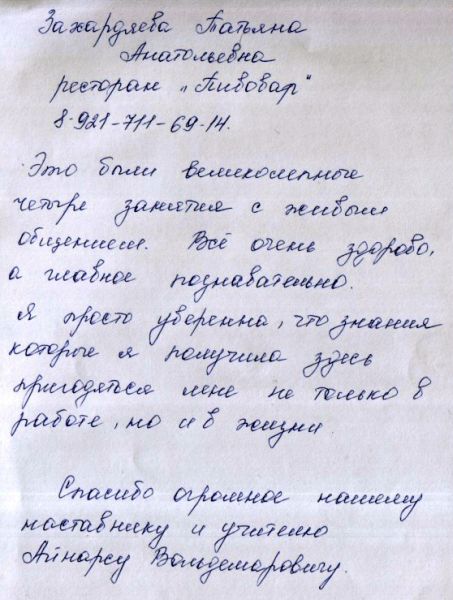 Захардяева Татьяна
Анатольевна
ресторан „Пивовар"
8-921-711-69-14.
Это были великолепные
четыре занятия с живым
общением. Всё очень здорово,
а главное познавательно.
Я просто уверенна, что знания
которые я получила здесь
пригодяться мне не только в
работе, но и в жизни.
Спасибо огромное нашему
наставнику и учителю
Айнарсу Вольдемаровичу.